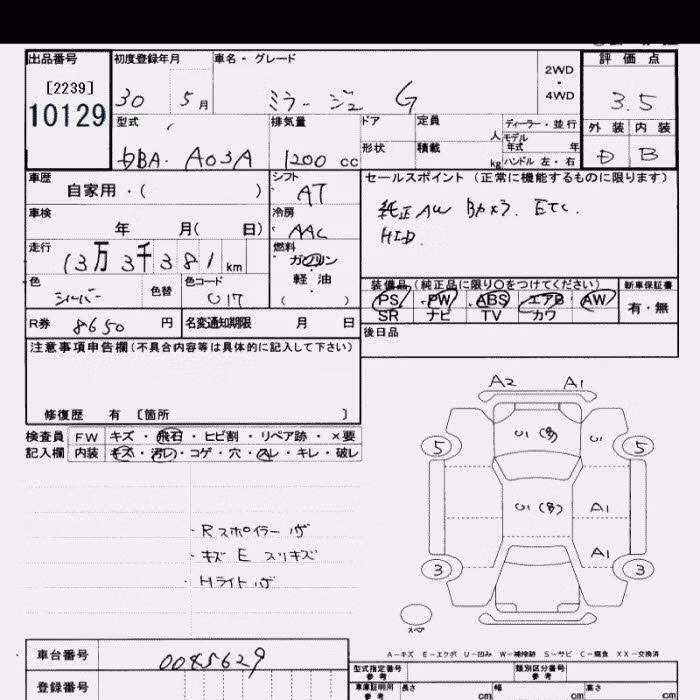 出品番号 初度登録年月 車名・グレード 評価点
[2239]
10129
30 5月 ミラージュ G 2WD・4WD 3.5
型式 排気量 ドア 定員 人 ディーラー・並行 外装 内装
形状 積載 kg モデル年式 年 ハンドル 左・右
DBA・A03A 1200cc D B
車歴 シフト セールスポイント(正常に機能するものに限ります)
自家用・( ) AT
純正AW Bカメラ. ETC.
車検 冷房
年 月( 日) AAC HID.
走行 燃料
13万3千381km ガソリン
軽油
( )
装備品(純正品に限り○をつけてください) 新車保証書
色 色替 色コード
シルバー U17
PS PW ABS エアB AW 有・無
SR ナビ TV カワ
R券 8650円 名変通知期限 月 日
後日品
注意事項申告欄(不具合内容等は具体的に記入して下さい)
修復歴 有 [箇所 ]
検査員 FW キズ・飛石・ヒビ割・リペア跡・×要
記入欄 内装 キズ・汚レ・コゲ・穴・スレ・キレ・破レ
A2 A1
5 U1(多) U1 5
U1(多) A1
A1
3 3
スペア
・Rスポイラーハゲ
・キズ E スリキズ
・Hライトハゲ
A-キズ E-エクボ U-凹み W-補修跡 S-サビ C-腐食 XX-交換済
車台番号 0085629
登録番号
型式指定番号 参考 類別区分番号 参考
車庫証明用 参考 長さ cm 幅 cm 高さ cm